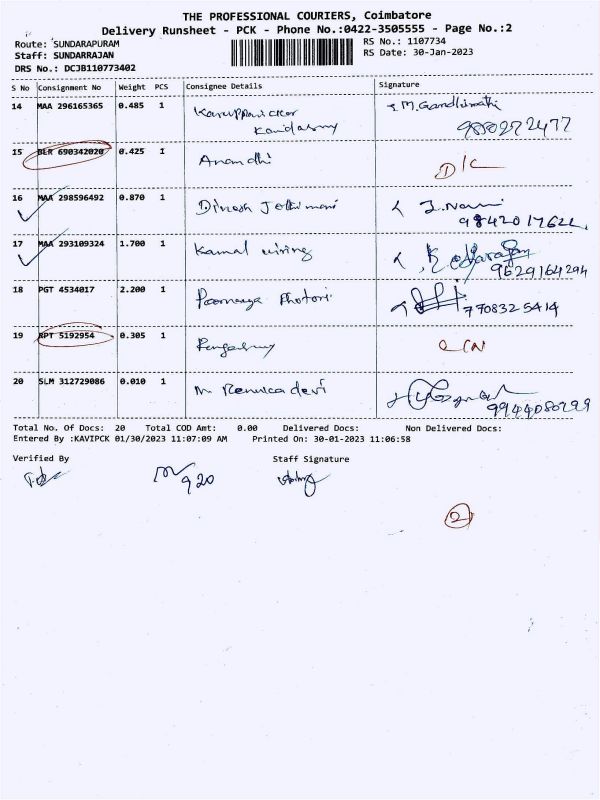 THE PROFESSIONAL COURIERS, Coimbatore
Delivery Runsheet - PCK - Phone No.:0422-3505555 - Page No.:2
Route: SUNDARAPURAM
RS No.: 1107734
Staff: SUNDARRAJAN
RS Date: 30-Jan-2023
DRS No.: DCJB110773402
S No Consignment No Weight PCS Consignee Details Signature
14 MAA 296165365 0.485 1 M. Gandhimathi
15 BLR 690342020 0.425 1 Anandhi D/C
16 MAA 298596492 0.870 1 Dinesh Jothimani
17 MAA 293109324 1.700 1 Kamal wiring
9629164294
18 PGT 4534017 2.200 1
7708325414
19 RPT 5192954 0.305 1
20 SLM 312729086 0.010 1 M. Renuka devi
9944080299
Total No. Of Docs: 20 Total COD Amt: 0.00 Delivered Docs: Non Delivered Docs:
Entered By :KAVIPCK 01/30/2023 11:07:09 AM Printed On: 30-01-2023 11:06:58
Verified By Staff Signature
920
2